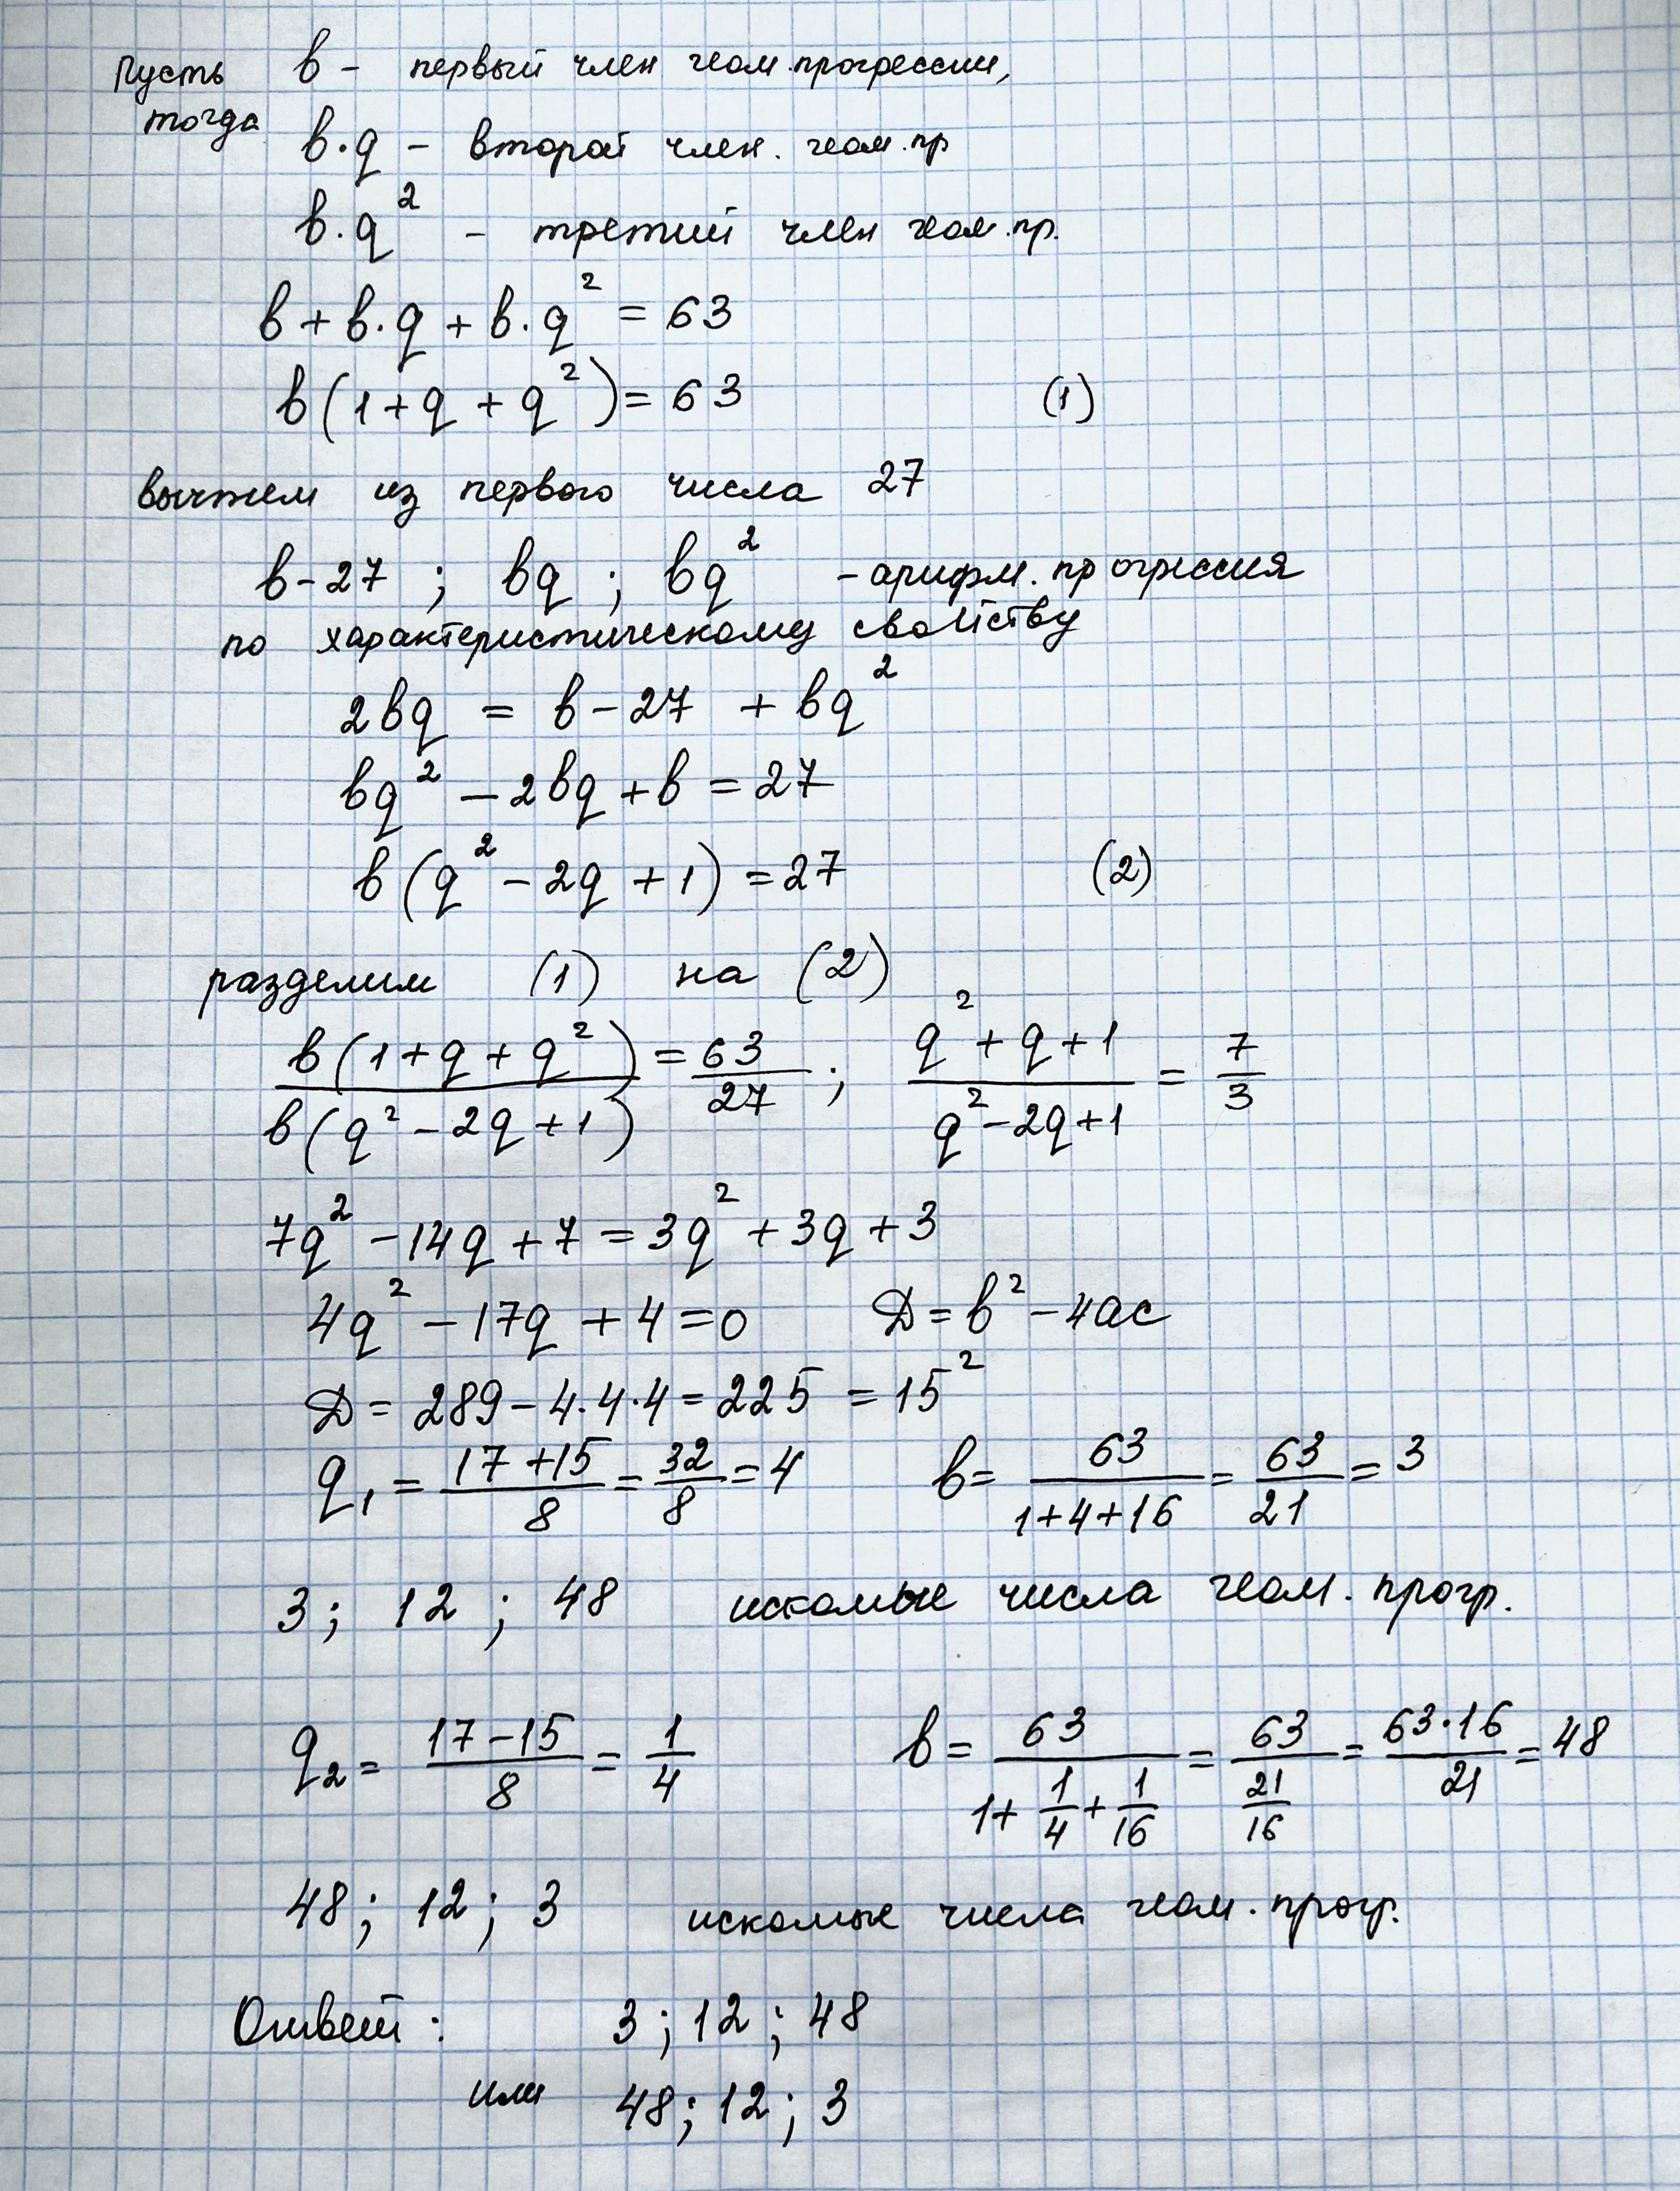 Пусть b - первый член геом. прогрессии,
тогда
b·q - второй член. геом. пр
b·q² - третий член геом. пр.
b + b·q + b·q² = 63
b(1+q+q²) = 63 (1)
вычтем из первого числа 27
b-27 ; bq ; bq² - арифм. прогрессия
по характеристическому свойству
2bq = b-27 + bq²
bq² - 2bq + b = 27
b(q² - 2q + 1) = 27 (2)
разделим (1) на (2)
b(1+q+q²) / b(q²-2q+1) = 63/27 ; (q²+q+1) / (q²-2q+1) = 7/3
7q² - 14q + 7 = 3q² + 3q + 3
4q² - 17q + 4 = 0 Д = b² - 4ac
Д = 289 - 4·4·4 = 225 = 15²
q₁ = (17+15)/8 = 32/8 = 4 b = 63/(1+4+16) = 63/21 = 3
3; 12; 48 искомые числа геом. прогр.
q₂ = (17-15)/8 = 1/4 b = 63/(1+1/4+1/16) = 63/(21/16) = 63·16/21 = 48
48; 12; 3 искомые числа геом. прогр.
Ответ: 3; 12; 48
или 48; 12; 3